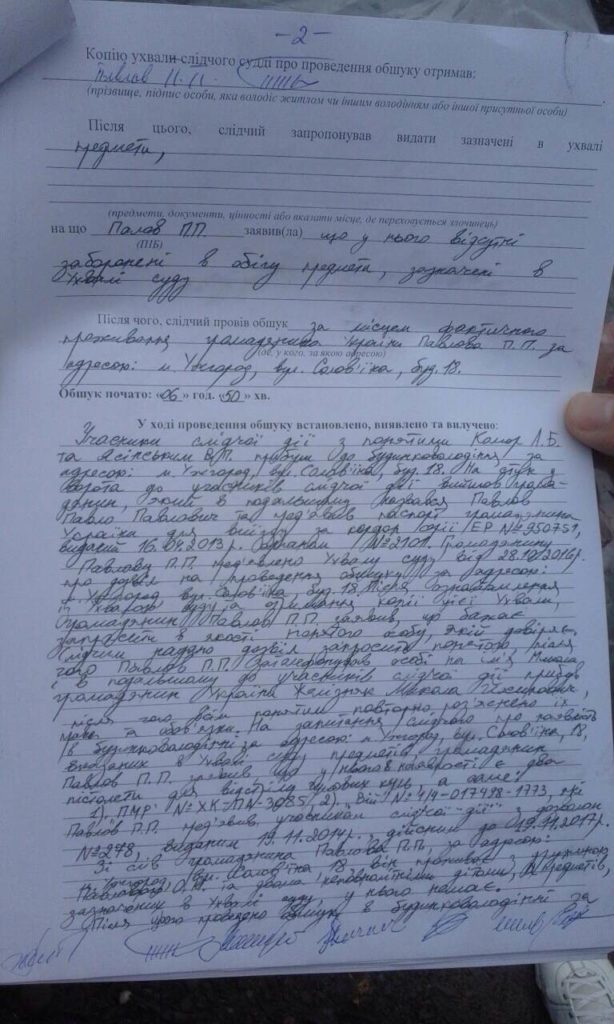 - 2 -
Копію ухвали слідчого судді про проведення обшуку отримав:
Павлов П.П.
(прізвище, підпис особи, яка володіє житлом чи іншим володінням або іншої присутньої особи)
Після цього, слідчий запропонував видати зазначені в ухвалі
предмети,
(предмети, документи, цінності або вказати місце, де переховується злочинець)
на що Павлов П.П. заявив(ла) що у нього відсутні
(ПІБ)
заборонені в обігу предмети, зазначені в
Ухвалі суду
Після чого, слідчий провів обшук за місцем фактичного
проживання громадянина України Павлова П.П. за
(де, у кого, за якою адресою)
адресою: м. Ужгород, вул. Солов'їна, буд. 18.
Обшук почато: «06» год. «50» хв.
У ході проведення обшуку встановлено, виявлено та вилучено:
Учасники слідчої дії з понятими Комар Л.Б.
та В.М. прибули до будинковолодіння за
адресою: м. Ужгород, вул. Солов'їна, буд. 18. На стук у
ворота до учасників слідчої дії вийшов грома-
дянин, який в подальшому назвався Павлов
Павло Павлович та пред'явив паспорт громадянина
України для виїзду за кордон серії ЕР № 950751,
виданий 16.04.2013 р. органом № 2101. Громадянину
Павлову П.П. пред'явлено Ухвалу суду від 28.10.2016 р.
про дозвіл на проведення обшуку за адресою:
м. Ужгород вул. Солов'їна, буд. 18. Після ознайомлення
із Ухвалою суду та отримання копії цієї Ухвали,
громадянин Павлов П.П. заявив, що бажає
запросити в якості понятого особу, якій довіряє.
Слідчим надано дозвіл запросити понятого, після
чого Павлов П.П. зателефонував особі на ім'я Микола
і в подальшому до учасників слідчої дії прибув
громадянин України Микола
після чого всім понятим повторно роз'яснено їх
права та обов'язки. На запитання слідчого про наявність
в будинковолодінні за адресою: м. Ужгород, вул. Солов'їна, 18,
вказаних в Ухвалі суду предметів, громадянин
Павлов П.П. заявив, що у нього в наявності є два
пістолети для відстрілу гумових куль, а саме:
1). ПМР № 2). № при
Павлов П.П. пред'явив учасникам слідчої дії дозволом
№ 278, виданим 19.11.2014 р., дійсним до 19.11.2017 р.
Зі слів громадянина Павлова П.П., за адресою:
м. Ужгород, вул. Солов'їна 18, він проживає з дружиною
Павловою О.М. та двома неповнолітніми дітьми, предметів,
зазначених в Ухвалі суду, у нього немає.
Після цього проведено обшук в будинковолодінні за